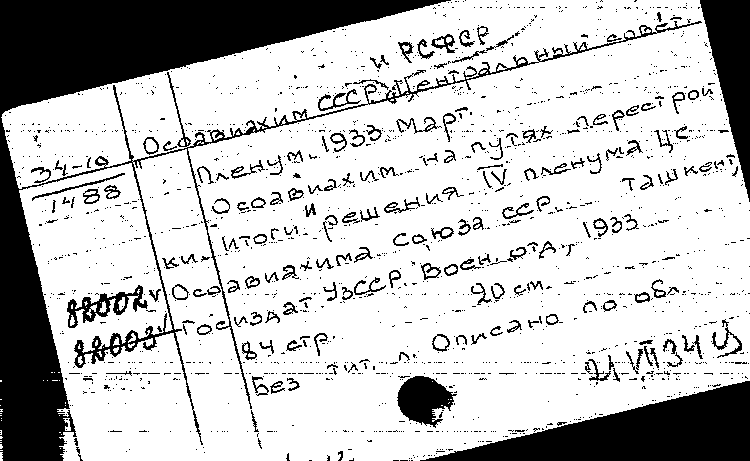 и РСФСР
Осоавиахим СССР, Центральный совет.
34-10
1488
Пленум. 1933. Март.
Осоавиахим на путях перестрой
ки. Итоги и решения IV пленума ЦС
Осоавиахима Союза ССР. Ташкент,
82002
Госиздат УзССР. Воен. отд., 1933
82003
84 стр. 20 см.
Без тит. л. Описано по обл.
21 VII 34